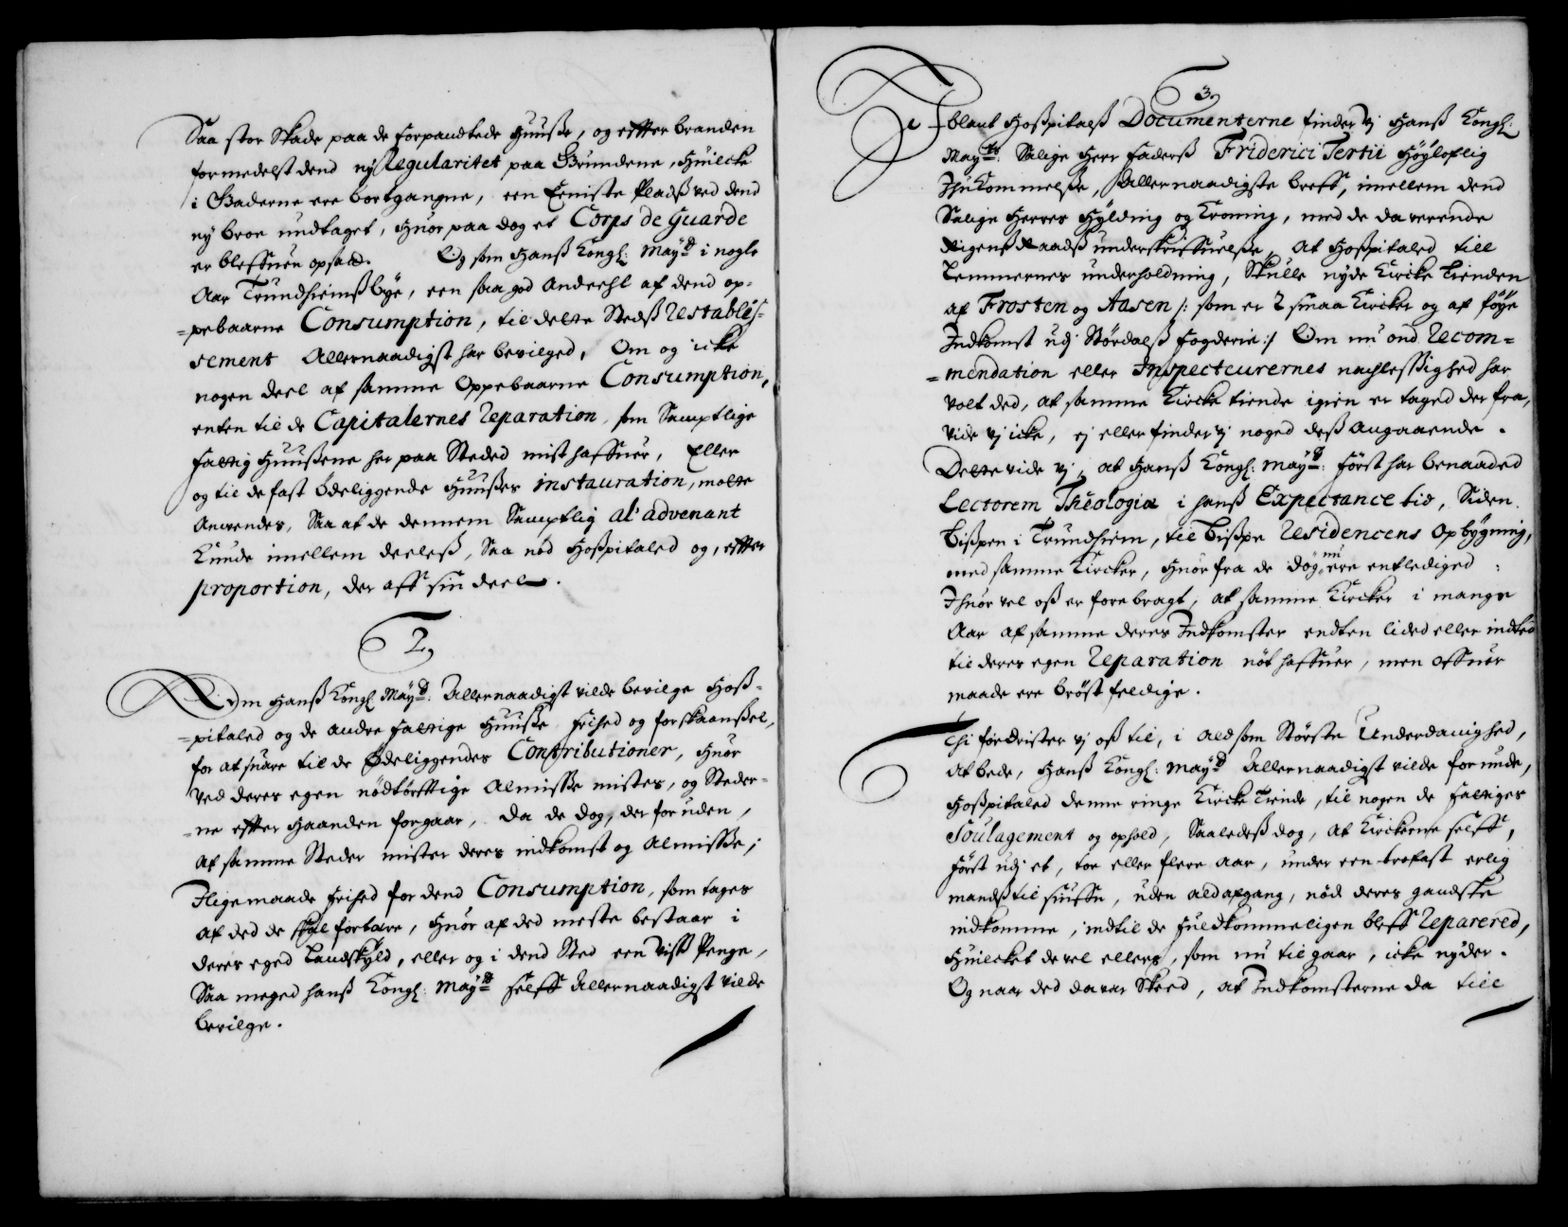 Saa stor Skade paa de forpandtede Huuße, og effter branden
formedelst dend ny Regularitet paa Grundene, Huilcke
i Gaderne ere bortgangne, een Eeniste Pladß ved dend
ny broe undtaget, Huor paa dog et Corps de Guarde
er bleffuen opsatt. Og som Hanß Kongl: Mayt i nogle
Aar Trundhiemß bye, een saa god Andeehl af dend op-
=pebaarne Consumption, til dette Stedß Restablis-
sement Allernaadigst har bevilged, Om og icke
nogen deel af samme Oppebaarne Consumption,
enten til de Capitalernes Reparation, som Samptlige
fattig Huußene her paa Steded mist haffuer, Eller
og til de fast ödeliggende Huußes instauration, motte
Anvendes, Saa at de dennem Samptlig al' advenant
Kunde imellem deeleß, Saa nød Hoßpitaled og, effter
proportion, der aff sin deel.
2,
Om Hanß Kongl Mayt: Allernaadigst vilde bevilge Hoß-
=pitaled og de andre fattige Huuße frihed og forskaanßel,
for at suare til de Ödeliggendes Contributioner, Huor
ved deres egen nödtörfftige Almisße mistes, og Steder-
=ne effter Haanden forgaar, da de dog, der foruden,
af samme Steder mister deres indkomst og Almisße;
Iligemaade frihed for dend Consumption, som tages
af ded de skal fortære, Huor af ded meste bestaar i
deres eged Landskyld, eller og i dend Sted een visß Penge,
Saa meged hanß Kongl: Mayt selff Allernaadigst vilde
bevilge.
3,
Iblant Hoßpitalß Documenterne finder vj Hanß Kongl:
Mayts: Salige Herr faderß Friderici Tertii Höyloflig
Ihukommelße, Allernaadigste breff, imellem dend
Salige Herres Hylding og Kroning, med de da verende
Rigens Raadß underskriffuelße, At Hoßpitaled till
Lemmernes underholdning, Skulle nyde Kircke Tienden
af Frosten og Aasen /: som er 2 smaa Kircker og af föye
Indkomst udj Stördalß fogderie :/ Om nu ond Recom=
=mendation eller Inspecteurernes nachlessighed har
volt ded, at samme Kircke tiende igien er taged der fra,
vide vj icke, ej eller finder vj noged deß Angaaende.
Dette vide vj, at Hanß Kongl: Mayt: först har benaaded
Lectorem Theologiæ i hanß Expectance tid, Siden
Bißpen i Trundhiem, til Bißpe Residencens Opbygning,
med samme Kircker, Huor fra de dog nu ere entlediged:
Ihuor vel oß er forebragt, at samme Kircker i mange
Aar af samme deres Indkomster endten lided eller indted
til deres egen Reparation nöt haffuer, men offuer
maade ere bröst feldige.
Thi fordrister vj oß til, i Ald som Störste Underdanighed,
At bede, Hanß Kongl: Mayt Allernaadigst vilde forunde,
Hoßpitaled denne ringe Kircke Tiende, til nogen de fattiges
Soulagement og ophold, Saaledeß dog, At Kirckerne selff,
först udj et, toe eller flere Aar, under een trofast erlig
mandß tilsiuffn, uden ald afgang, nöd deres gandske
indkomme, indtil de fuldkommeligen bleff Reparered,
Huilcket de vel ellers, som nu tilgaar, icke nyder.
Og naar ded da var Skeed, at Indkomsterne da till